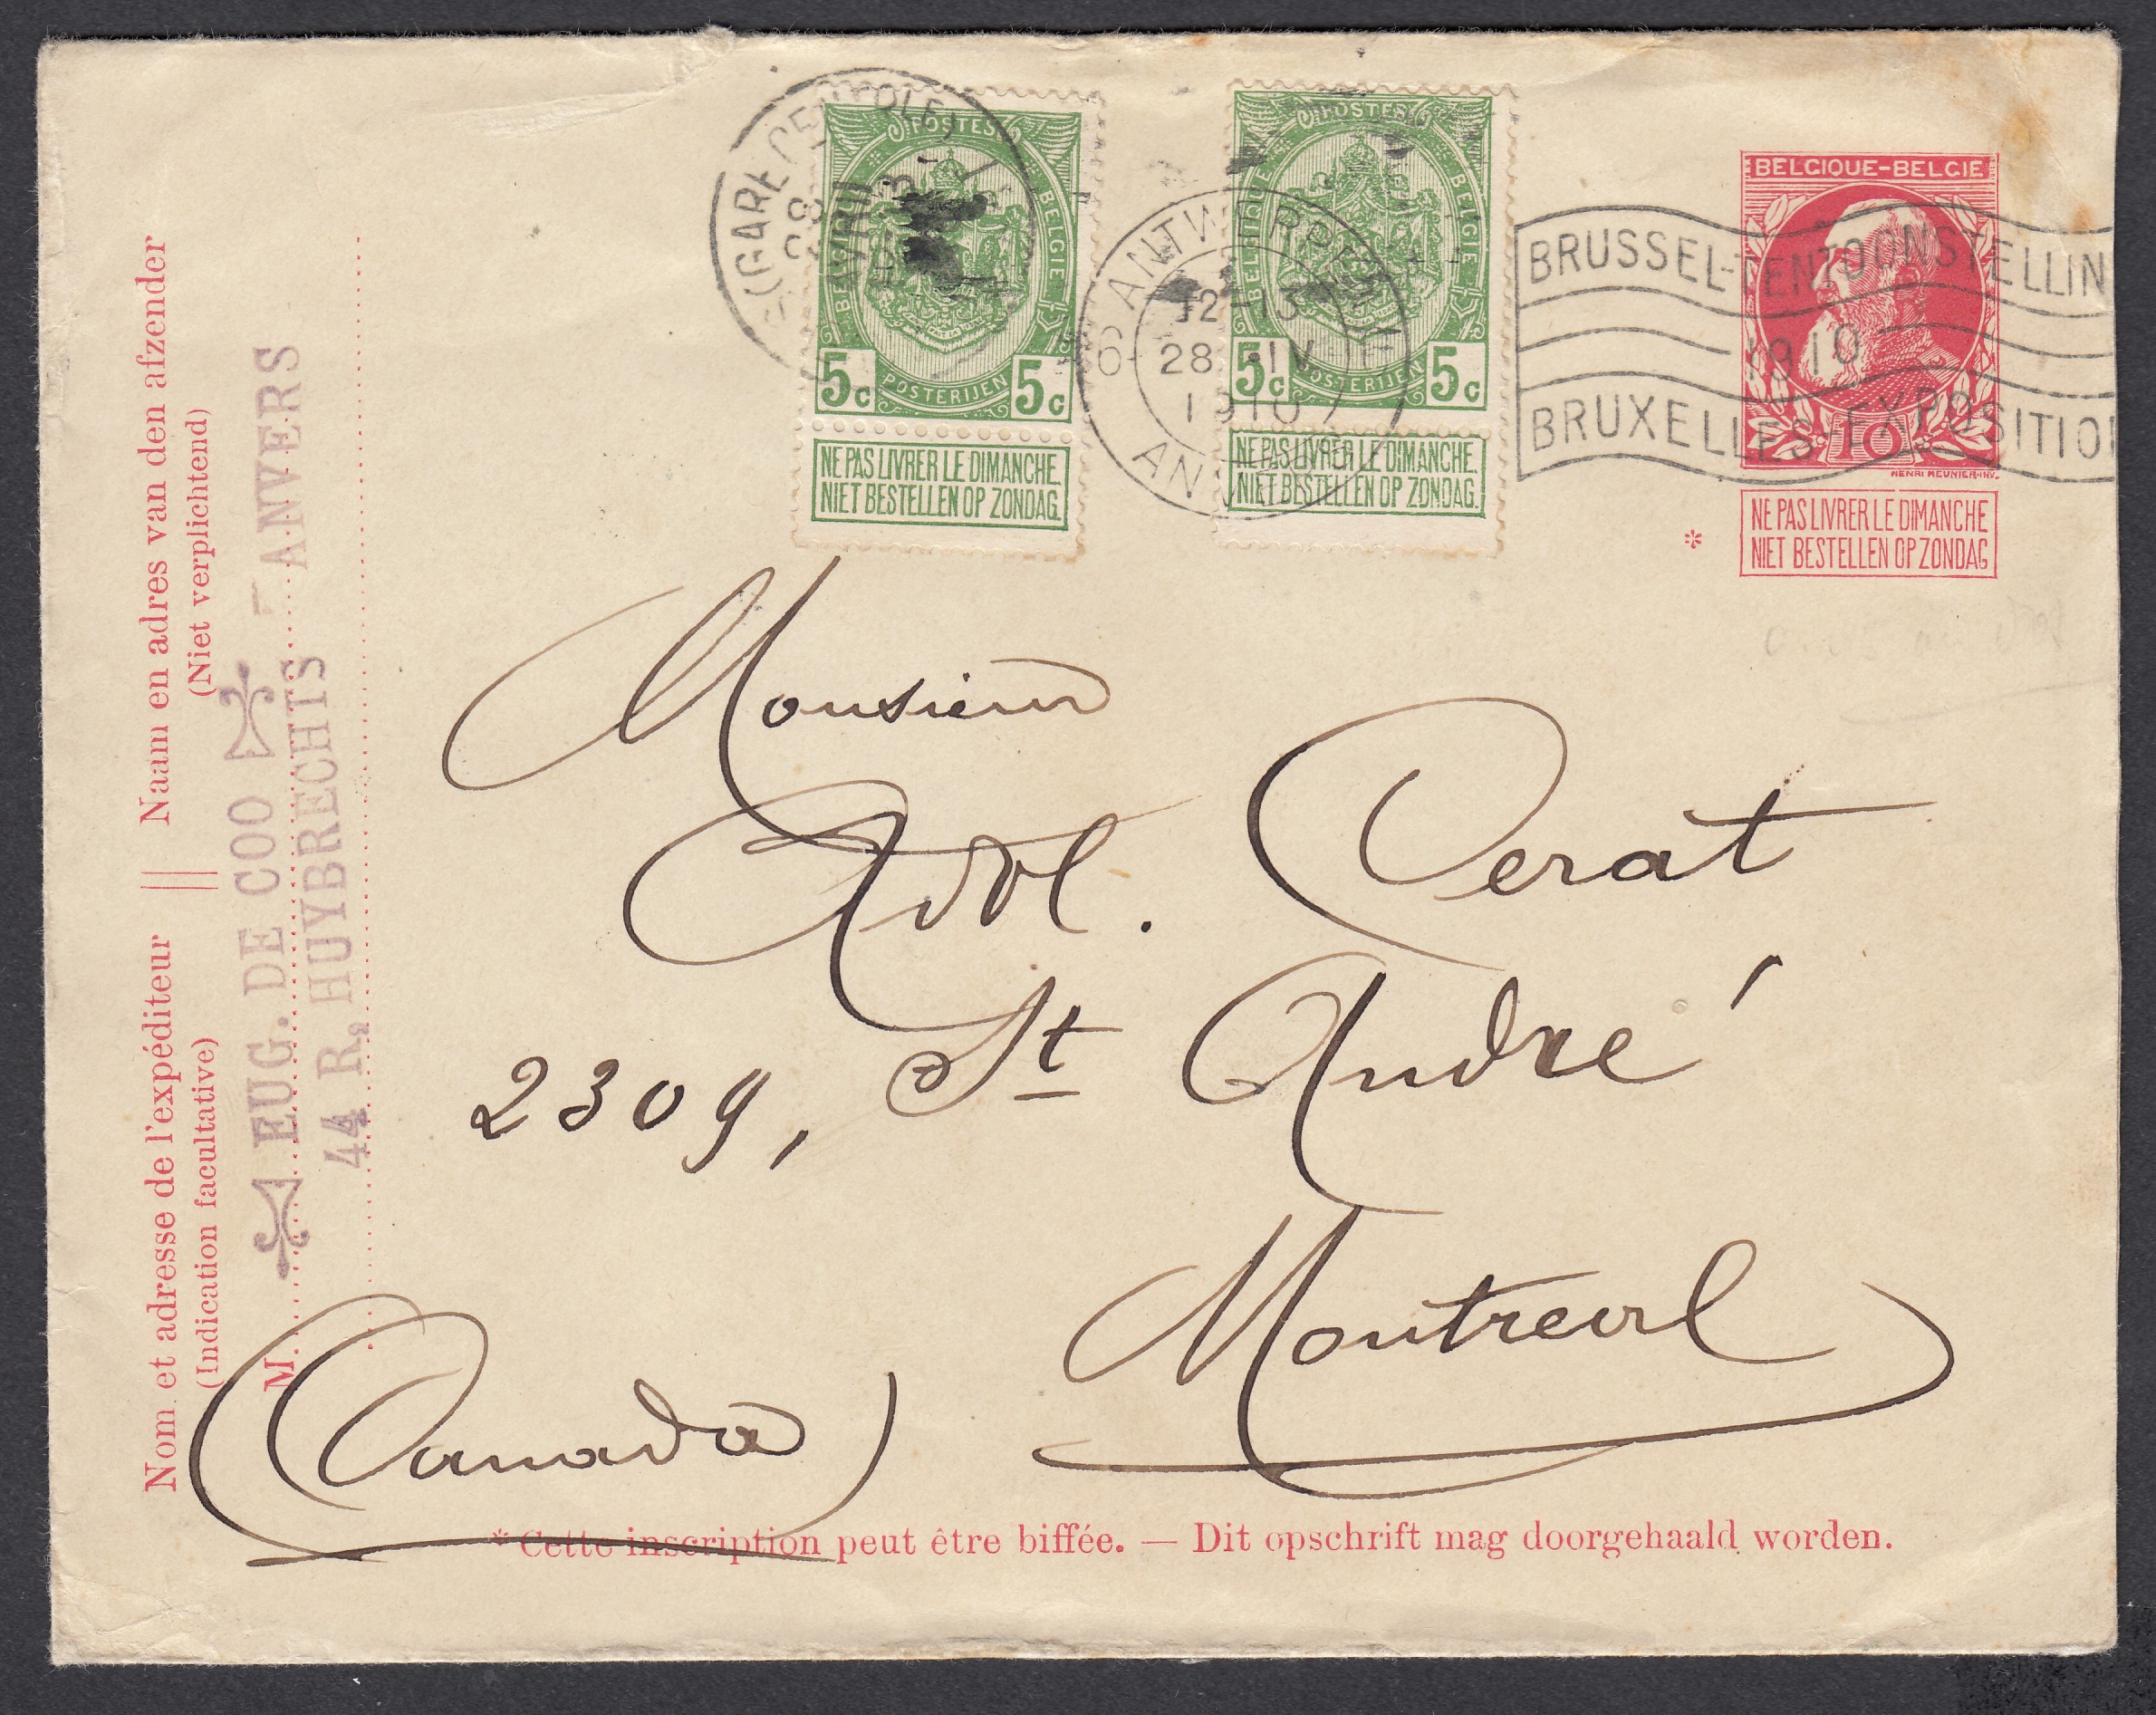 (GARE CENTRALE)
AVRIL
POSTES
BELGIQUE BELGIE
5c 5c
POSTERIJEN
NE PAS LIVRER LE DIMANCHE
NIET BESTELLEN OP ZONDAG.
ANTWERPEN
6
12-13
28 IV
1910
ANVERS
POSTES
BELGIQUE BELGIE
5c 5c
POSTERIJEN
NE PAS LIVRER LE DIMANCHE.
NIET BESTELLEN OP ZONDAG.
BRUSSEL-TENTOONSTELLIN
1910
BRUXELLES-EXPOSITIO
BELGIQUE-BELGIE
10
HENRI MEUNIER-INV.
* NE PAS LIVRER LE DIMANCHE
NIET BESTELLEN OP ZONDAG
Nom et adresse de l'expéditeur || Naam en adres van den afzender
(Indication facultative) (Niet verplichtend)
M.
EUG. DE COO
44 R. HUYBRECHTS ANVERS
Monsieur
Adol. Cerat
2309, St André
Montreal
(Canada)
* Cette inscription peut être biffée. — Dit opschrift mag doorgehaald worden.